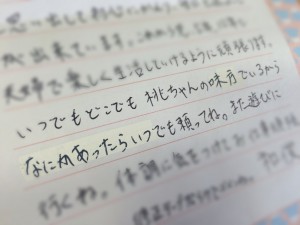 思い出して
が出来ています。これからも
夫婦で楽しく生活していけるように頑張ります。
いつでもどこでも桃ちゃんの味方でいるから
なにかあったらいつでも頼ってね。また遊びに
行くね。体調に気をつけてお仕事